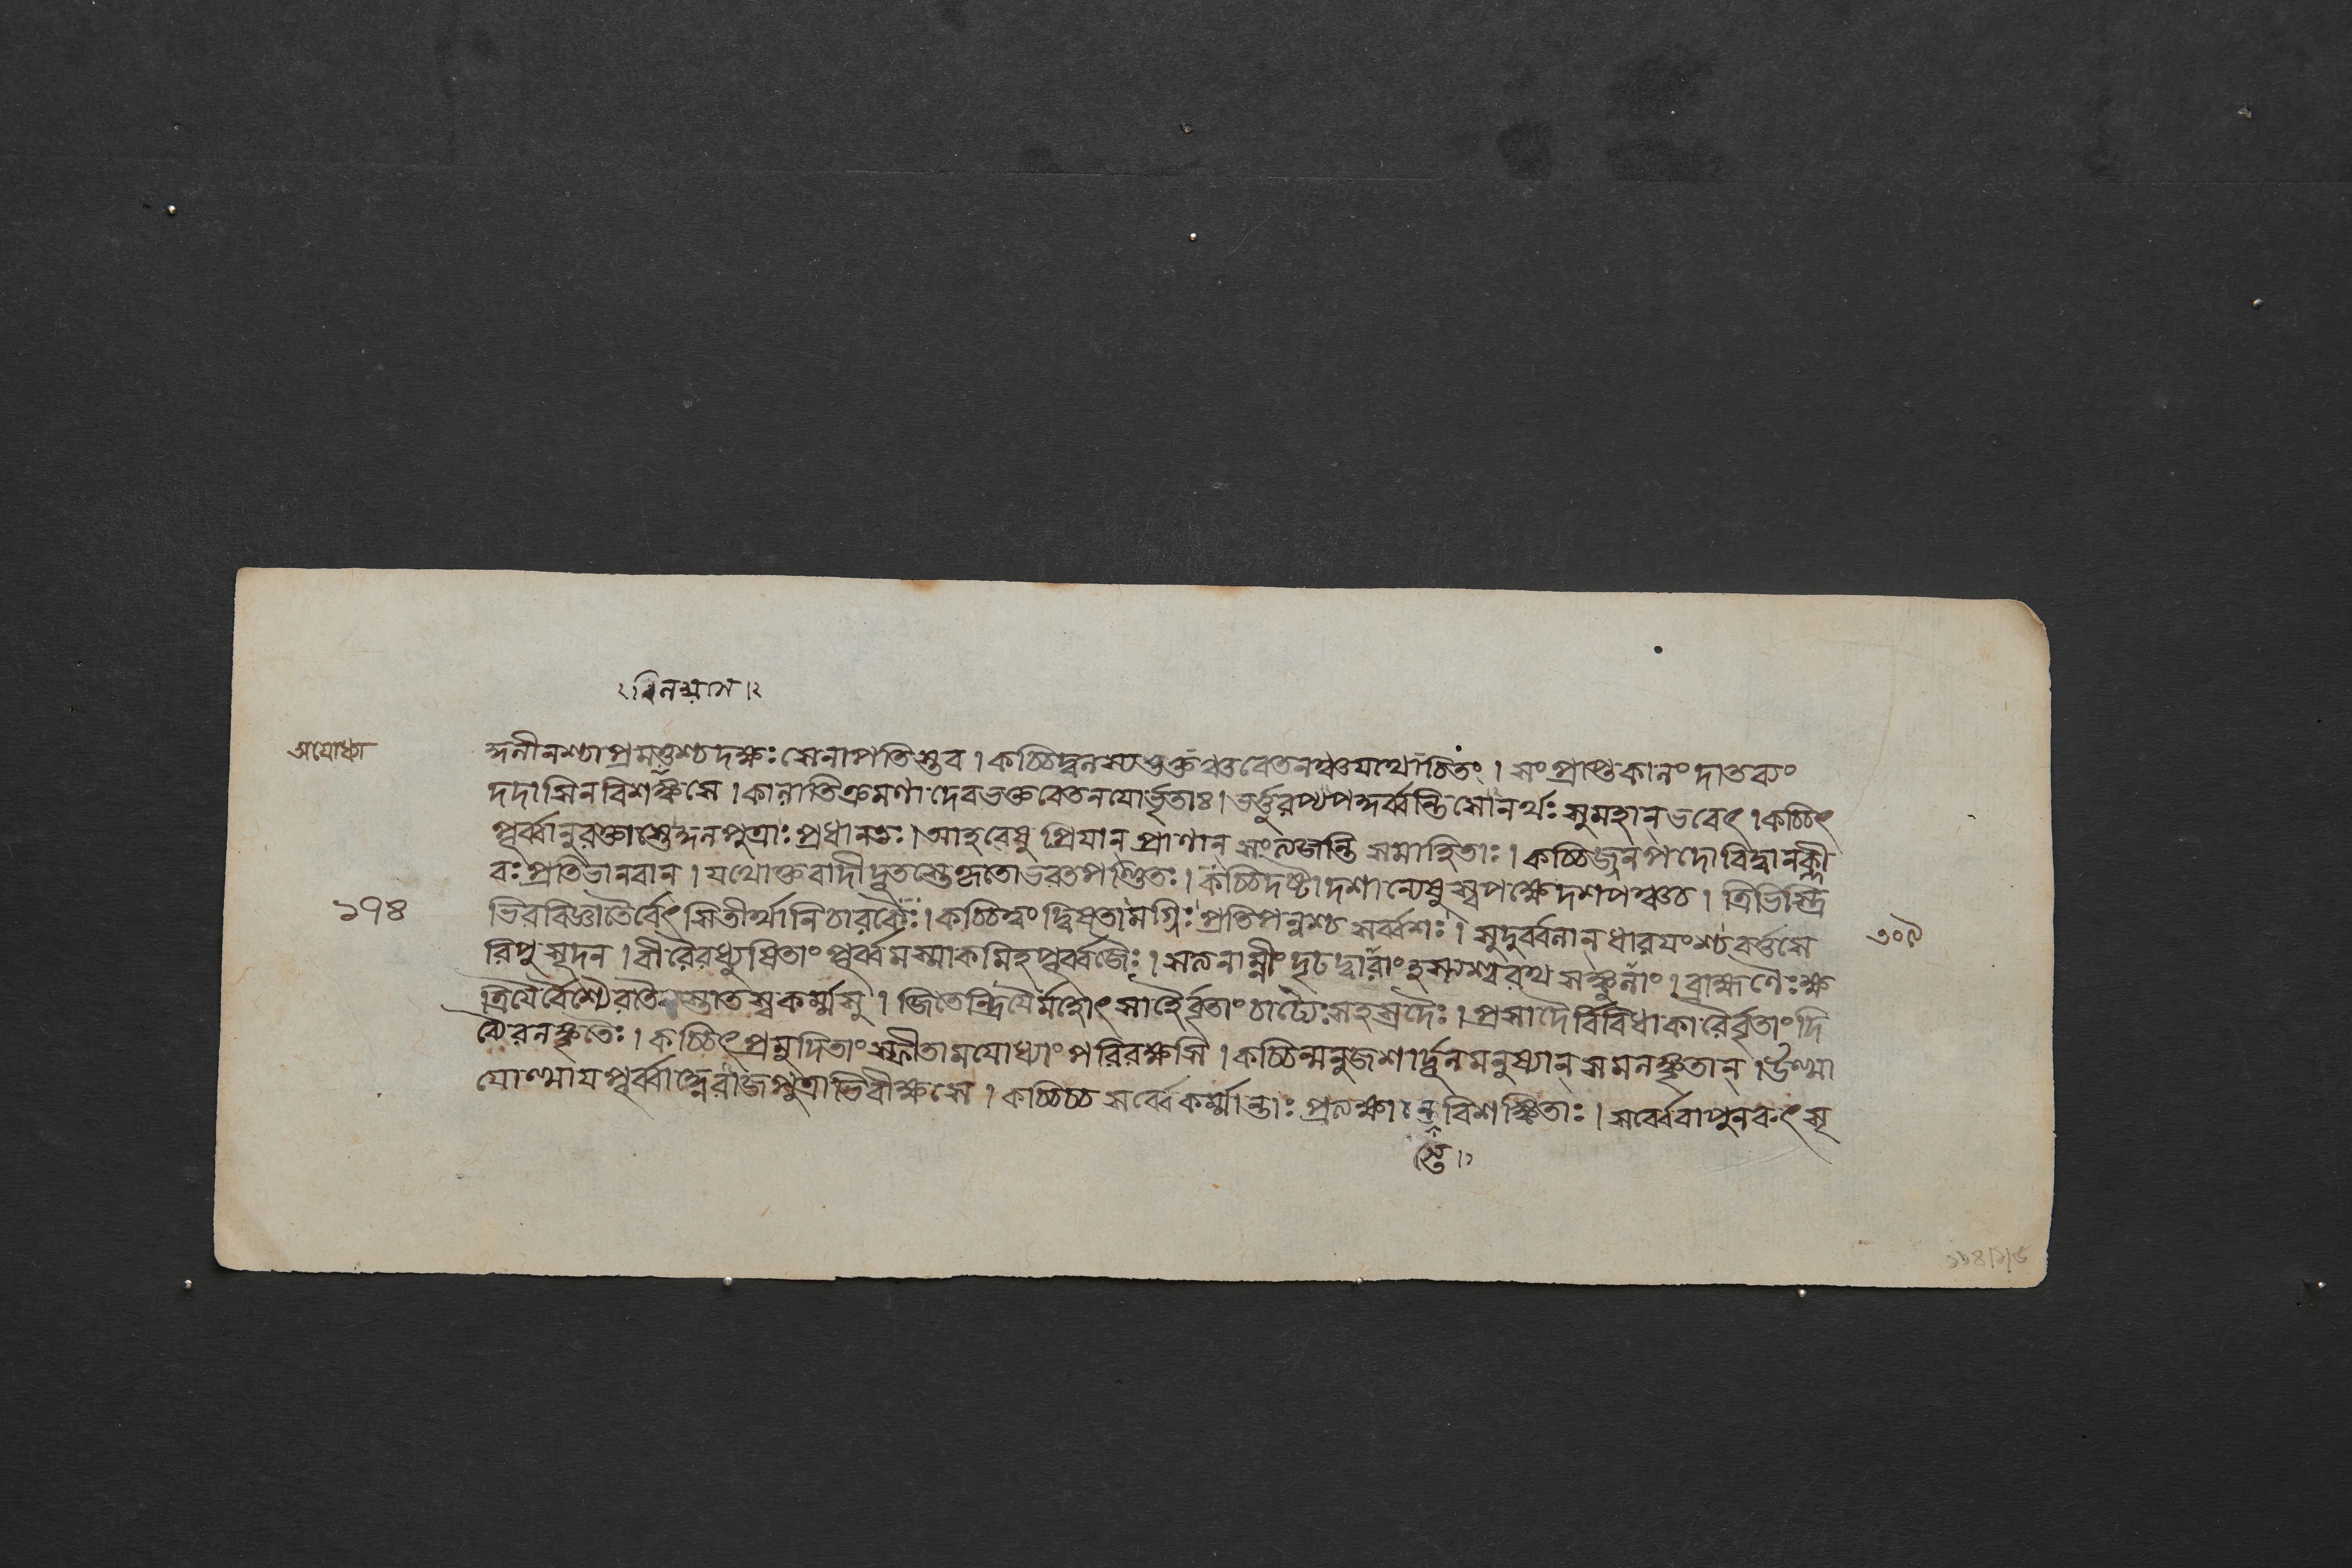 অযোধ্যা
কুলীনশ্চাপ্রমত্তশ্চদক্ষঃ সেনাপতিস্তব । কচ্চিদ্বলস্যভক্তঞ্চবেতনঞ্চযথোচিতং । সংপ্রাপ্তকালং দাতব্যং
দদাসিনবিলম্বসে । কালাতিক্রমণাদেবভক্তবেতনযোর্ভৃতাঃ । ভর্ত্তুরপ্যপকুর্ব্বন্তি সোনর্থঃ সুমহান্ ভবেৎ । কচ্চিৎ
পূর্ব্বানুরক্তাস্তেকুলপুত্রাঃ প্রধানতঃ । আহবেষু প্রিযান্ প্রাণান্ সংত্যজন্তি সমাহিতাঃ । কচ্চিজ্জনপদোবিদ্বানক্লী
বঃ প্রতিভানবান । যথোক্তবাদীদূতস্তেকৃতোভরতপণ্ডিতঃ । কচ্চিদষ্টাদশান্যেষুস্বপক্ষেদশপঞ্চচ । ত্রিভিস্ত্রি
১৭৪
ভিরবিজ্ঞাতৈর্বেৎসিতীর্থানিচারকৈঃ । কচ্চিত্ত্বং দ্বিষতামগ্নিঃ প্রতিপন্নশ্চ সর্ব্বশঃ । সুদুর্ব্বলান ধারযংশ্চবর্ত্তসে
৩০৯
রিপুসূদন । বীরৈরধ্যুষিতাং পূর্ব্বমস্মাকমিহপূর্ব্বজৈঃ । সত্যনাম্নীং দৃঢদ্বারাং হস্ত্যশ্বরথসঙ্কুলাং । ব্রাহ্মণৈঃক্ষ
ত্রিযৈর্বৈশ্যৈ স্বকর্ম্মসু । জিতেন্দ্রিযৈর্মহোৎসাহৈর্বৃতাং চাঢ্যৈঃসহস্রদৈঃ । প্রসাদৈর্বিবিধাকারৈর্বৃতাং দি
ব্যৈরলঙ্কৃতৈঃ । কচ্চিৎপ্রমুদিতাং স্ফীতামযোধ্যাং পরিরক্ষসি । কচ্চিন্মনুজশার্দ্দূলমনুষ্যান্ সমলঙ্কৃতান্ । উত্থা
যোত্থাযপূর্ব্বাহ্নেরাজপুত্রাভিবীক্ষসে । কচ্চিচ্চ সর্ব্বেকর্ম্মান্তাঃ প্রত্যক্ষা বিশঙ্কিতাঃ । সর্ব্বেবাপুনরুৎসৃ
স্তে ।১